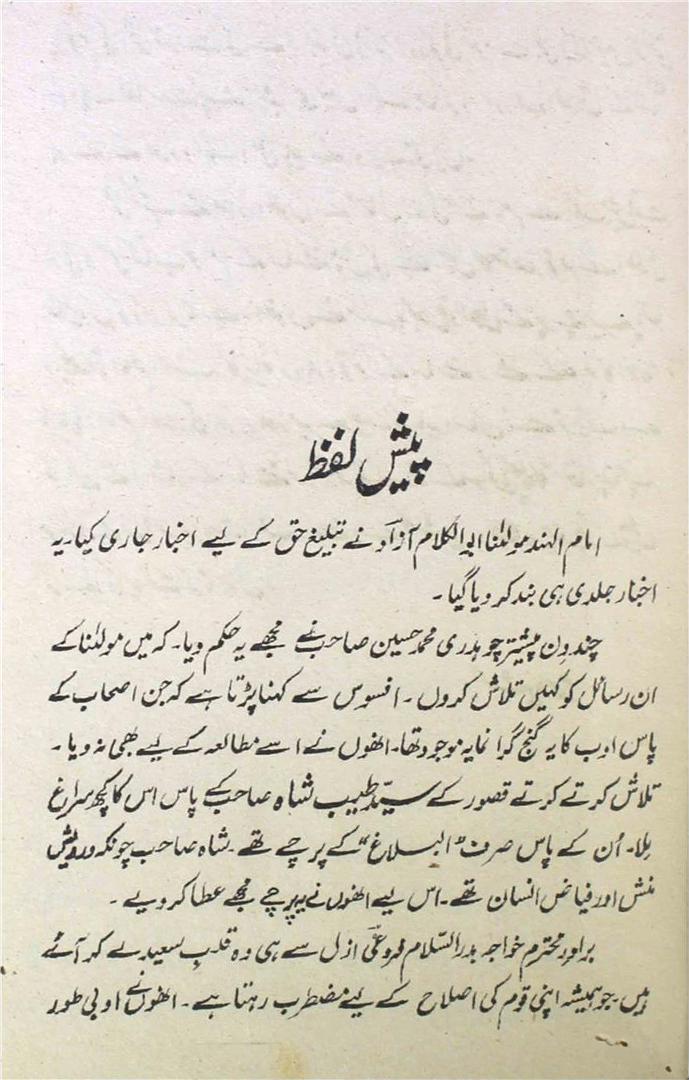 پیش لفظ
امام الہند مولٰنا ابوالکلام آزاد نے تبلیغ حق کے لیے اخبار جاری کیا۔ یہ
اخبار جلدی ہی بند کر دیا گیا۔
چند دن پیشتر چوہدری محمد حسین صاحب نے مجھے یہ حکم دیا۔ کہ میں مولٰنا کے
ان رسائل کو کہیں تلاش کروں۔ افسوس سے کہنا پڑتا ہے کہ جن اصحاب کے
پاس ادب کا یہ گنج گرانمایہ موجود تھا۔ انھوں نے اسے مطالعہ کے لیے بھی نہ دیا۔
تلاش کرتے کرتے قصور کے سید طیب شاہ صاحب کے پاس اس کا کچھ سراغ
ملا۔ اُن کے پاس صرف "البلاغ" کے پرچے تھے۔ شاہ صاحب چونکہ درویش
منش اور فیاض انسان تھے۔ اس لیے انھوں نے یہ پرچے مجھے عطا کر دیے۔
برادر محترم خواجہ بدرالسّلام فروغی ازل سے ہی وہ قلبِ سعید لے کر آئے
ہیں۔ جو ہمیشہ اپنی قوم کی اصلاح کے لیے مضطرب رہتا ہے۔ انھوں نے ادبی طور